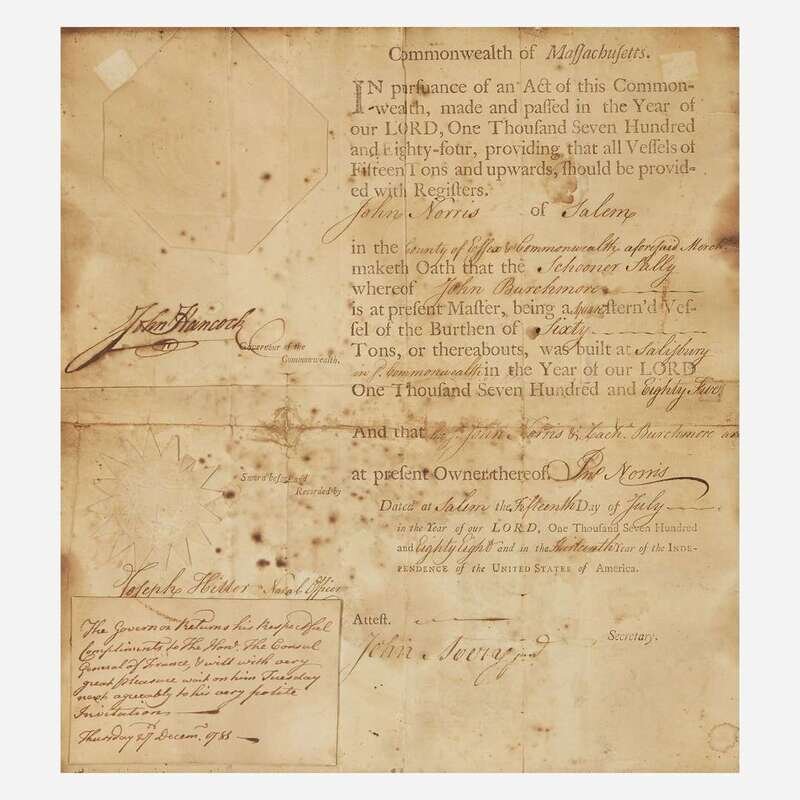 Commonwealth of Maſſachuſetts.
IN purſuance of an Act of this Common-
-wealth, made and paſſed in the Year of
our LORD, One Thouſand Seven Hundred
and Eighty-four, providing that all Veſſels of
Fifteen Tons and upwards, ſhould be provid-
ed with Regiſters.
John Norris of Salem
in the County of Eſſex & Commonwealth aforeſaid Merch.
maketh Oath that the Schooner Sally
whereof John Burchmore
is at preſent Maſter, being a ſquare ſtern'd Veſ-
ſel of the Burthen of Sixty
Tons, or thereabouts, was built at Salisbury
in ſ. Commonwealth in the Year of our LORD
One Thouſand Seven Hundred and Eighty Five
And that John Norris & Zach. Burchmore are
at preſent Owners thereof. Jno Norris
Dated at Salem the Fifteenth Day of July
in the Year of our LORD, One Thouſand Seven Hundred
and Eighty Eight and in the thirteenth Year of the INDE-
PENDENCE of the UNITED STATES of America.
Atteſt.
Secretary.
John Avery junr
John Hancock
Governour of the
Commonwealth.
Sworn before and
Recorded by
Joseph Hiller Naval Officer
The Governor Returns his Respectful
Compliments to The Honl. The Consul
General of France, & will with very
great pleasure wait on him Tuesday
next agreeably to his very polite
Invitation
Thursday 27 Decemr. 1781